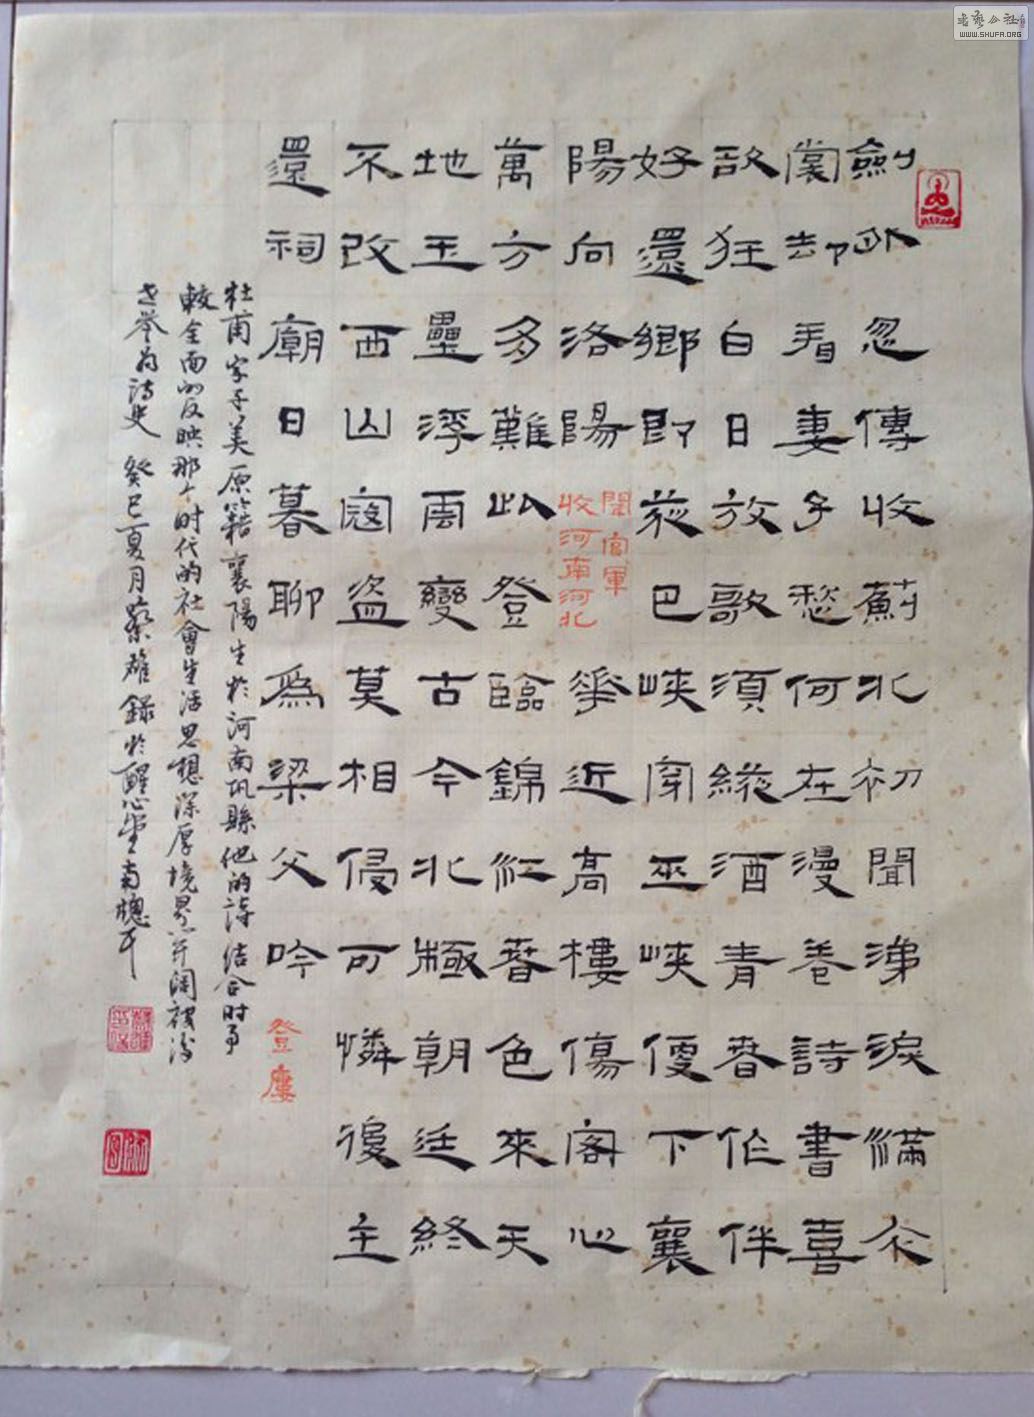 劍外忽傳收薊北初聞涕淚滿衣
裳却看妻子愁何在漫卷詩書喜
欲狂白日放歌須縱酒青春作伴
好還鄉即從巴峽穿巫峽便下襄
陽向洛陽
聞官軍
收河南河北
華近高樓傷客心
萬方多難此登臨錦江春色來天
地玉壘浮雲變古今北極朝廷終
不改西山寇盜莫相侵可憐後主
還祠廟日暮聊爲梁父吟
登樓
杜甫字子美原籍襄陽生於河南巩縣他的詩結合时事
較全面的反映那个时代的社會生活思想深厚境界开阔被後
世誉为诗史 癸巳夏月蔡雄録於醒心堂南牕下
書藝公社
WWW.SHUFA.ORG